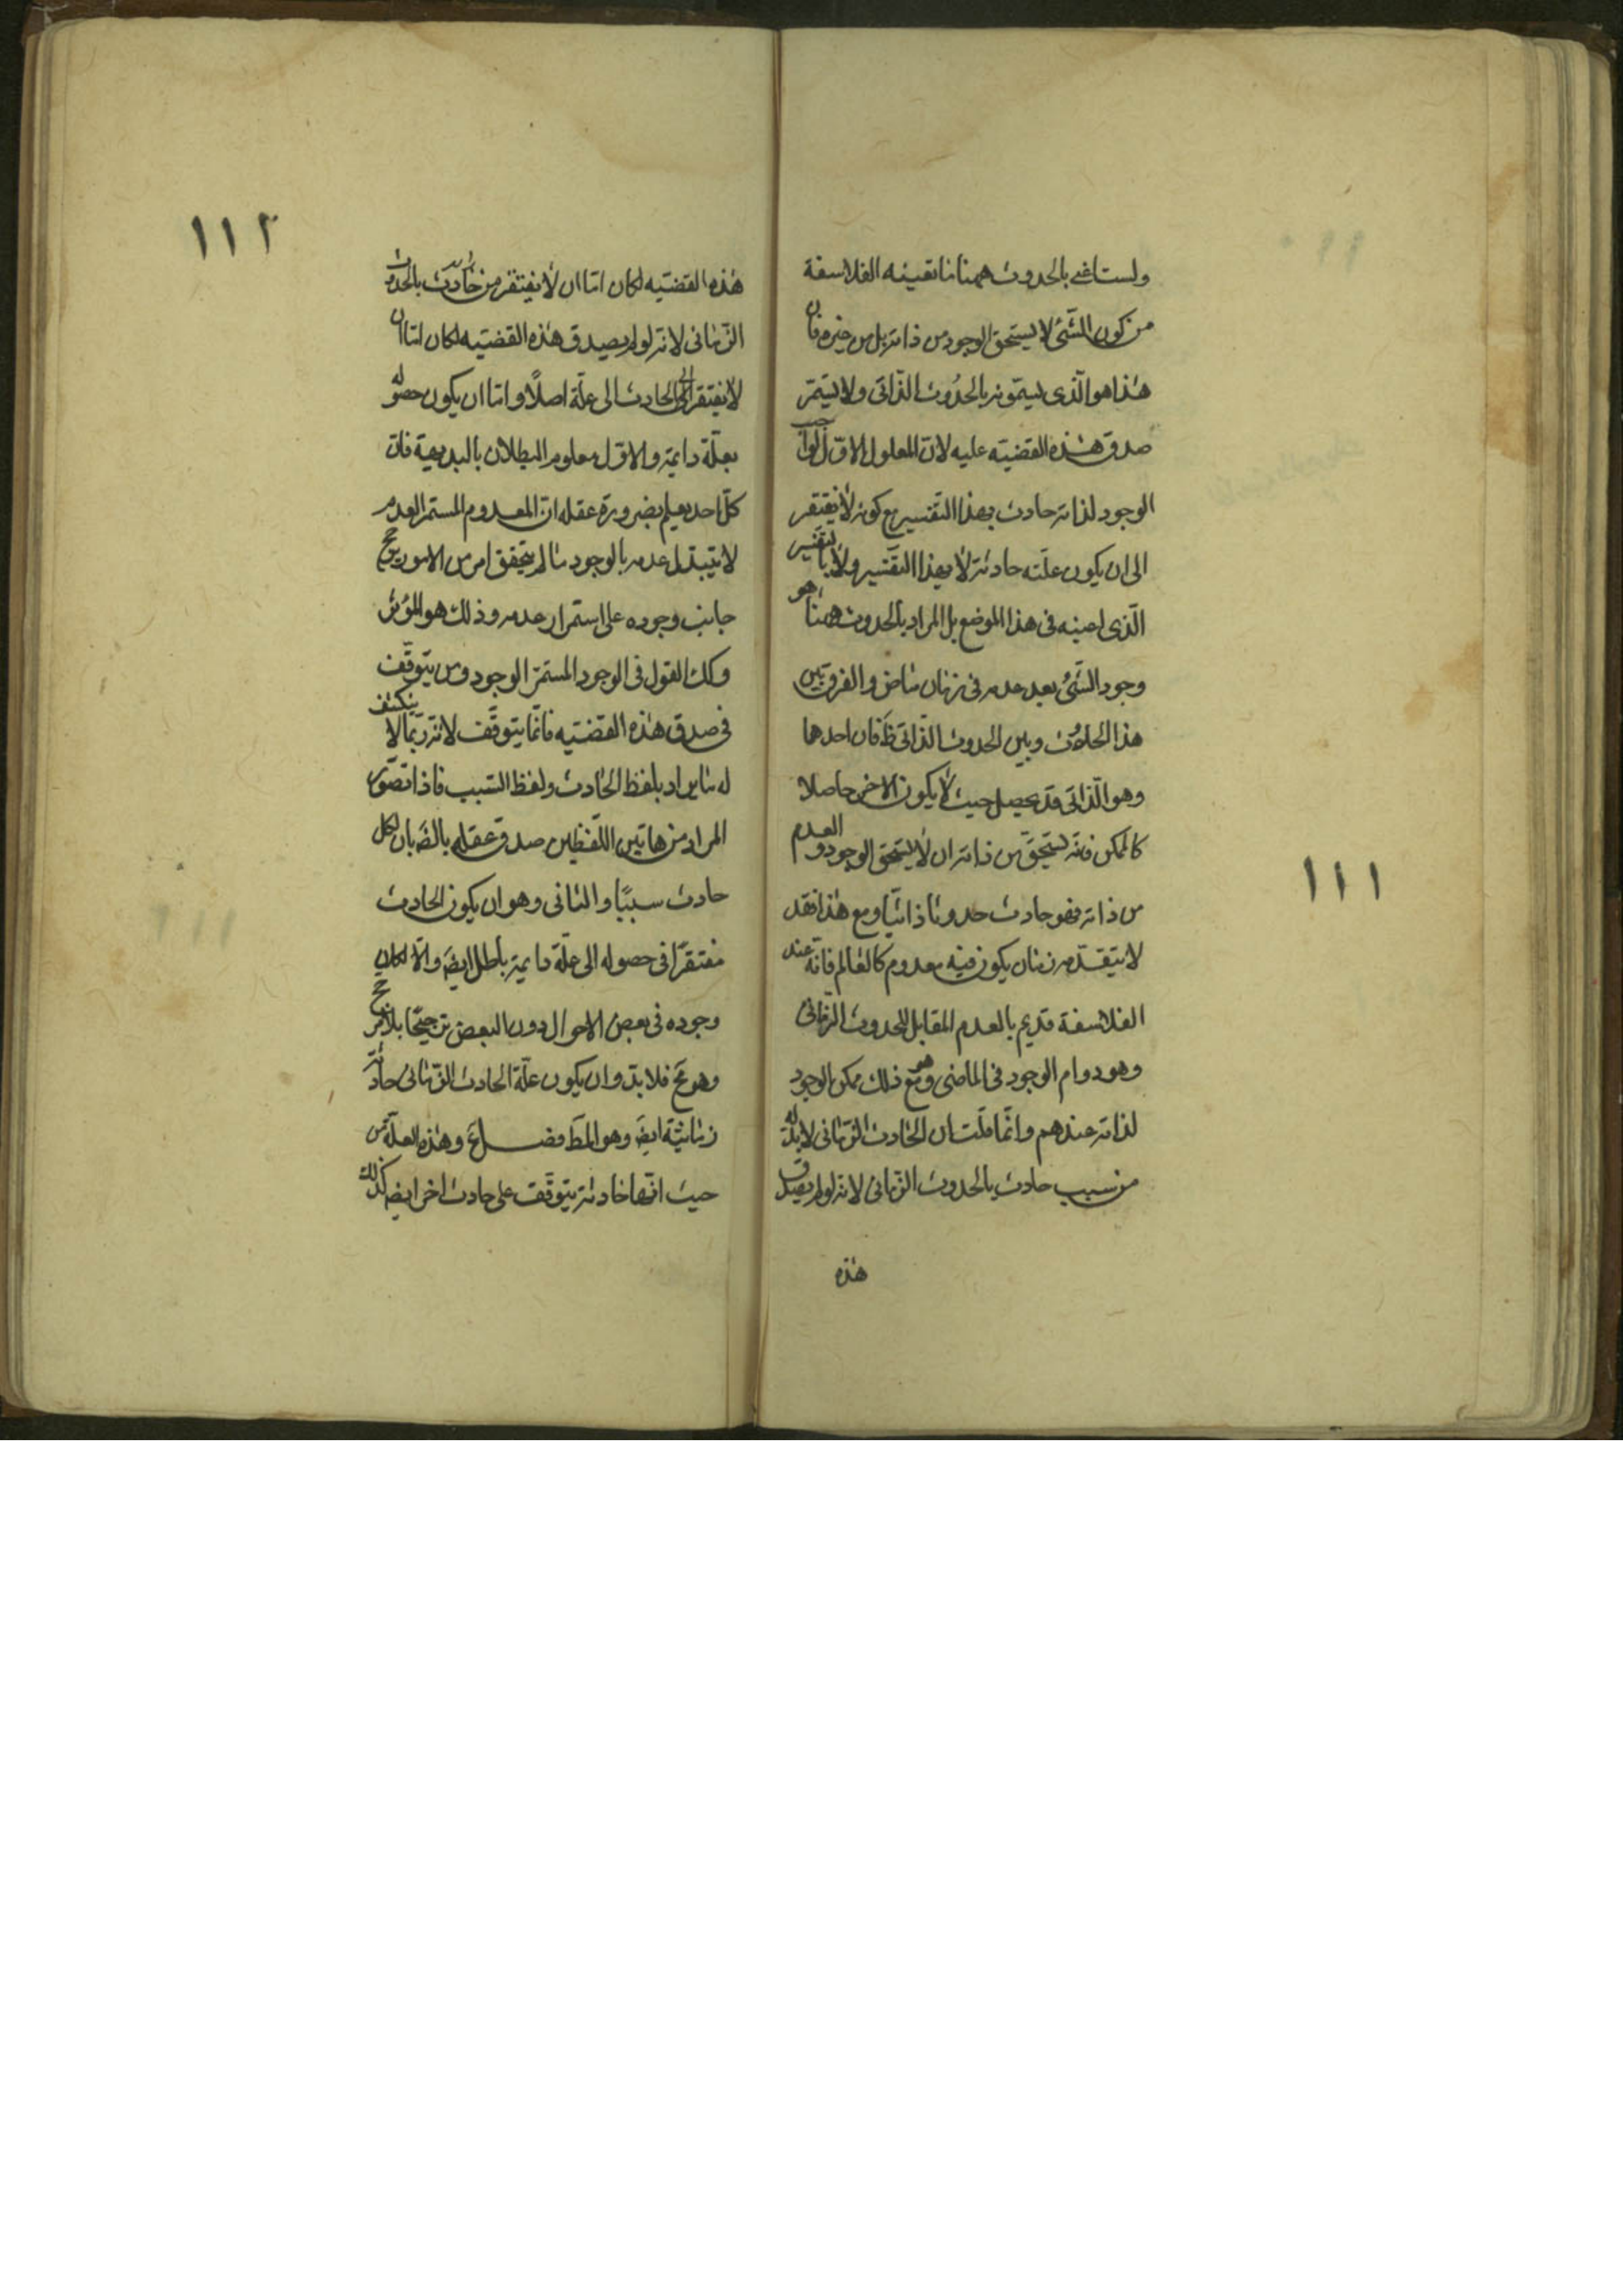 ولست اعنى بالحدوث ههنا ما تعينه الفلاسفة
من كون الشئ لا يستحق الوجود من ذاته بل من غيره فان
هذا هو الذى يسمونه بالحدوث الذاتى ولا يستمر
صدق هذه القضيه عليه لان المعلول الاول لواجب
الوجود لذاته حادث بهذا التفسير مع كونه لا يفتقر
الى ان يكون علته حادثة لا بهذا التفسير ولا بالتفسير
الذى اعينه فى هذا الموضع بل المراد بالحدوث ههنا هو
وجود الشئ بعد عدمه فى زمان ماض والفرق بين
هذا الحدوث وبين الحدوث الذاتى ظ فان احدهما
وهو الذاتى قد يحصل حيث لا يكون الاخر حاصلا
كالممكن فانه يستحق من ذاته ان لا يستحق الوجود و العدم
من ذاته فهو حادث حدوثا ذاتيا ومع هذا فقد
لا يتقدمه زمان يكون فيه معدوم كالعالم فانه عند
الفلاسفة قديم بالعدم المقابل للحدوث الزمانى
وهو دوام الوجود فى الماضى وهو مع ذلك ممكن الوجود
لذاته عندهم وانما قلت ان الحادث الزمانى لا بد له
من سبب حادث بالحدوث الزمانى لانه لو لم يصدق
هذه
١١١
١١٢
هذه القضيه لكان اما ان لا يفتقر من حادث بالحدوث
الزمانى لانه لو لم يصدق هذه القضيه لكان اما ان
لا يفتقر الى الحادث الى علة اصلًا واما ان يكون حصوله
بعلة دايمة والاول معلوم البطلان بالبديهية فان
كل احد يعلم بضرورة عقله ان المعدوم المستمر العدم
لا يتبدل عدمه بالوجود ما لم يتحقق امر من الامور يرجح
جانب وجوده على استمرار عدمه وذلك هو المؤثر
وكك القول فى الوجود المستمر الوجود ومن يتوقف
فى صدق هذه القضيه فانما يتوقف لانه ربما لا ينكشف
له ما يراد بلفظ الحادث ولفظ السبب فاذا تصور
المراد من هاتين اللفظين صدق عقله بالضَ بان لكل
حادث سببًا والثانى وهو ان يكون الحادث
مفتقرًا فى حصوله الى علة دايمة باطل ايضَ والا لكان
وجوده فى بعض الاحوال دون البعض ترجيحًا بلا مرجح
وهو مح فلا بد وان يكون علة الحادث الزمانى حادثة
زمانية ايضَ وهو المط فصل ع وهذه العلة من
حيث انها حادثة يتوقف على حادث اخر ايضَ كذلك